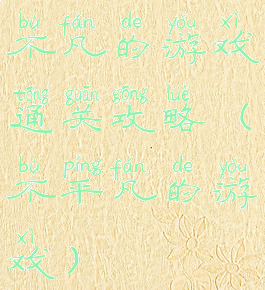 bù fán de yóu xì
不凡的游戏
tōng guān gōng lüè
通关攻略（
bù píng fán de yóu
不平凡的游
xì
戏）